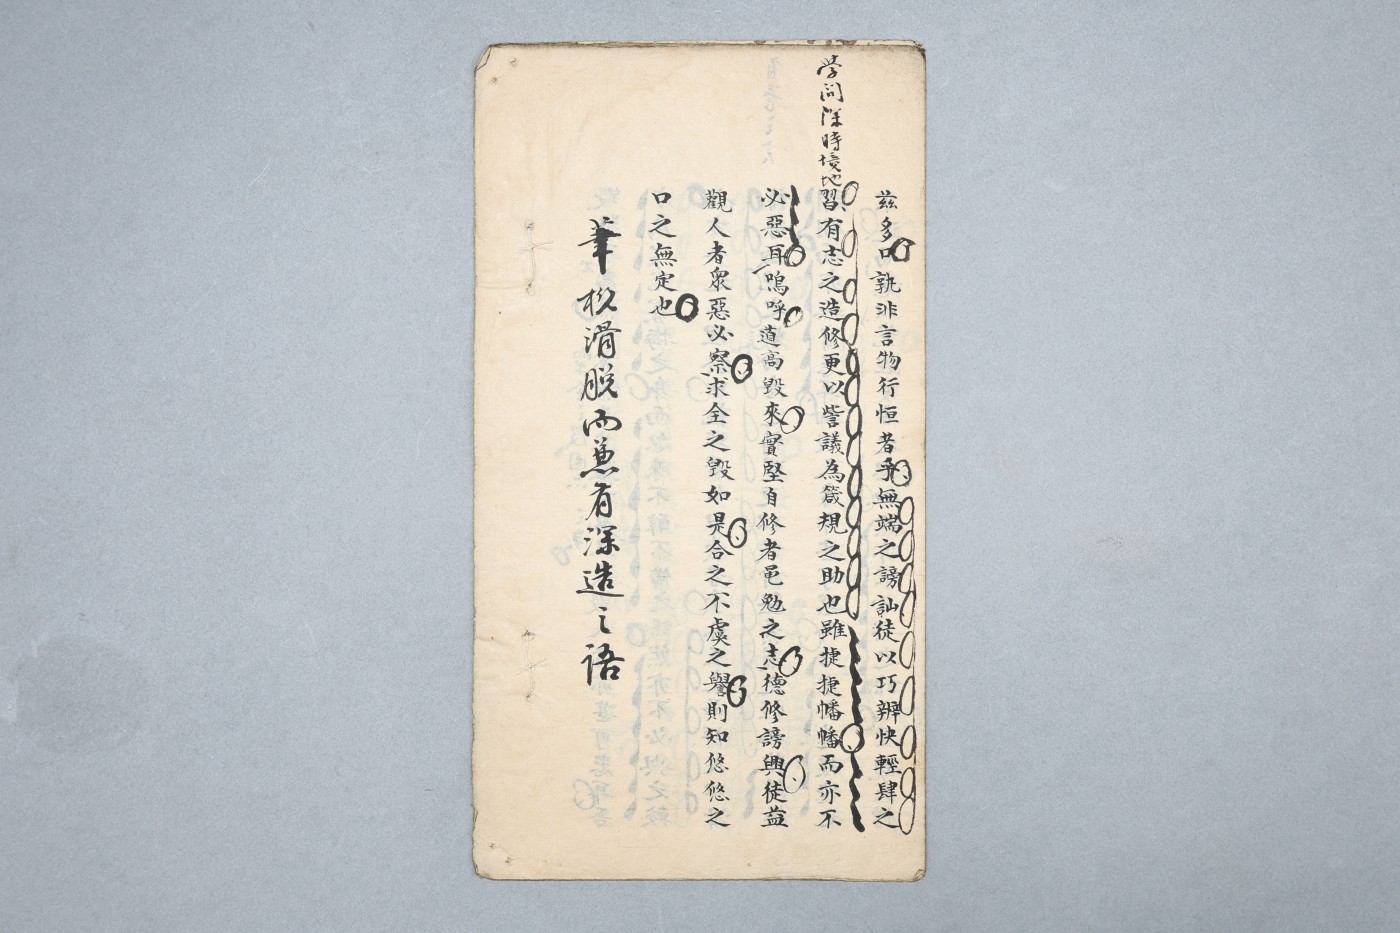 學問深時境地
茲多口孰非言物行恒者乎無端之謗訕徒以巧辨快輕肆之
習有志之造修更以訾議為箴規之助也雖捷捷幡幡而亦不
必惡耳嗚呼道高毀來實堅自修者邑勉之志德修謗興徒益
觀人者衆惡必察求全之毀如是合之不虞之譽則知悠悠之
口之無定也
筆機滑脫而兼有深造之語